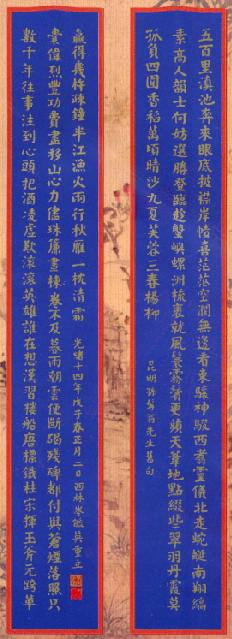 五百里滇池奔來眼底披襟岸幘喜茫茫空濶無邊看東驤神駿西翥靈儀北走蜿蜒南翔縞
素高人韻士何妨選勝登臨趁蟹嶼螺洲梳裹就風鬟霧鬢更蘋天葦地點綴些翠羽丹霞莫
孤負四圍香稻萬頃晴沙九夏芙蓉三春楊柳
昆明孫髯翁先生舊句
數千年往事注到心頭把酒凌虛歎滾滾英雄誰在想漢習樓船唐標鐵柱宋揮玉斧元跨革
囊偉烈豐功費盡移山心力儘珠簾畫棟卷不及暮雨朝雲便斷碣殘碑都付與蒼煙落照只
贏得幾杵疎鐘半江漁火兩行秋雁一枕清霜 光緒十四年戊子春正月二日西林岑毓英重立